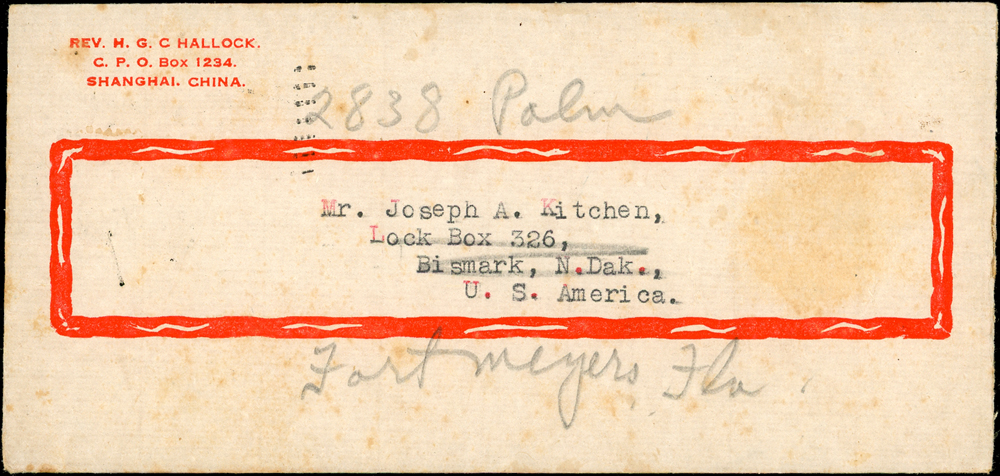 REV. H. G. C HALLOCK.
C. P. O. Box 1234.
SHANGHAI. CHINA.
2838 Palm
Mr. Joseph A. Kitchen,
Lock Box 326,
Bismark, N.Dak.,
U. S. America.
Fort Meyers, Fla.